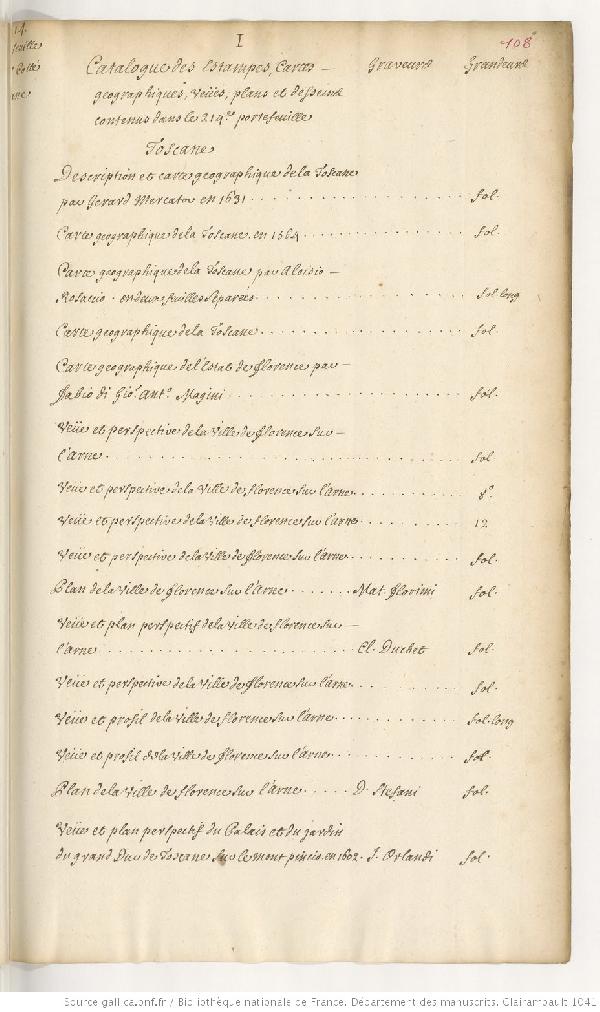 I
108
Catalogue des Estampes, Cartes – Graveurs Grandeurs
geographiques, Veües, plans et desseins
contenus dans le 214e portefeuille
Toscane
Description et carte geographique de la Toscane
par Gerard Mercator en 1631 fol.
Carte geographique de la Toscane en 1564 fol.
Carte geographique de la Toscane par Aloisio –
Rosaccio en deux feuilles separées fol. long
Carte geographique de la Toscane fol.
Carte geographique de l'Estat de florence par –
fabio di Gio. ant.o Magini fol.
Veüe et perspective de la Ville de florence sur –
l'arne fol
Veüe et perspective de la Ville de florence sur l'arne 8o.
Veüe et perspective de la Ville de florence sur l'arne 12
Veüe et perspective de la Ville de florence sur l'arne fol.
Plan de la Ville de florence sur l'arne Mat. florimi fol.
Veüe et plan perspectif de la Ville de florence sur –
l'arne Cl. Duchet fol.
Veüe et perspective de la Ville de florence sur l'arne fol.
Veüe et profil de la Ville de florence sur l'arne fol. long
Veüe et profil de la Ville de florence sur l'arne fol.
Plan de la Ville de florence sur l'arne D. Stefani fol.
Veüe et plan perspectif du Palais et du jardin
du grand Duc de Toscane sur le mont pincio en 1602. J. Orlandi fol.
Source gallica.bnf.fr / Bibliothèque nationale de France. Département des manuscrits. Clairambault 1041